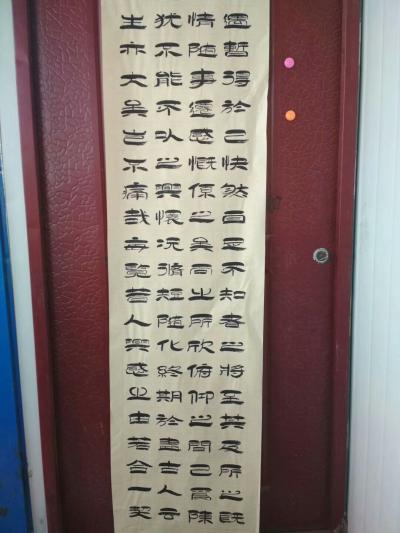 遇暫得於己快然自足不知老之將至其及所之既
情随事遷感慨係之矣向之所欣俯仰之間已為陳
猶不能不以之興懷況脩短随化終期於盡古人云
生亦大矣豈不痛哉每覽昔人興感之由若合一契